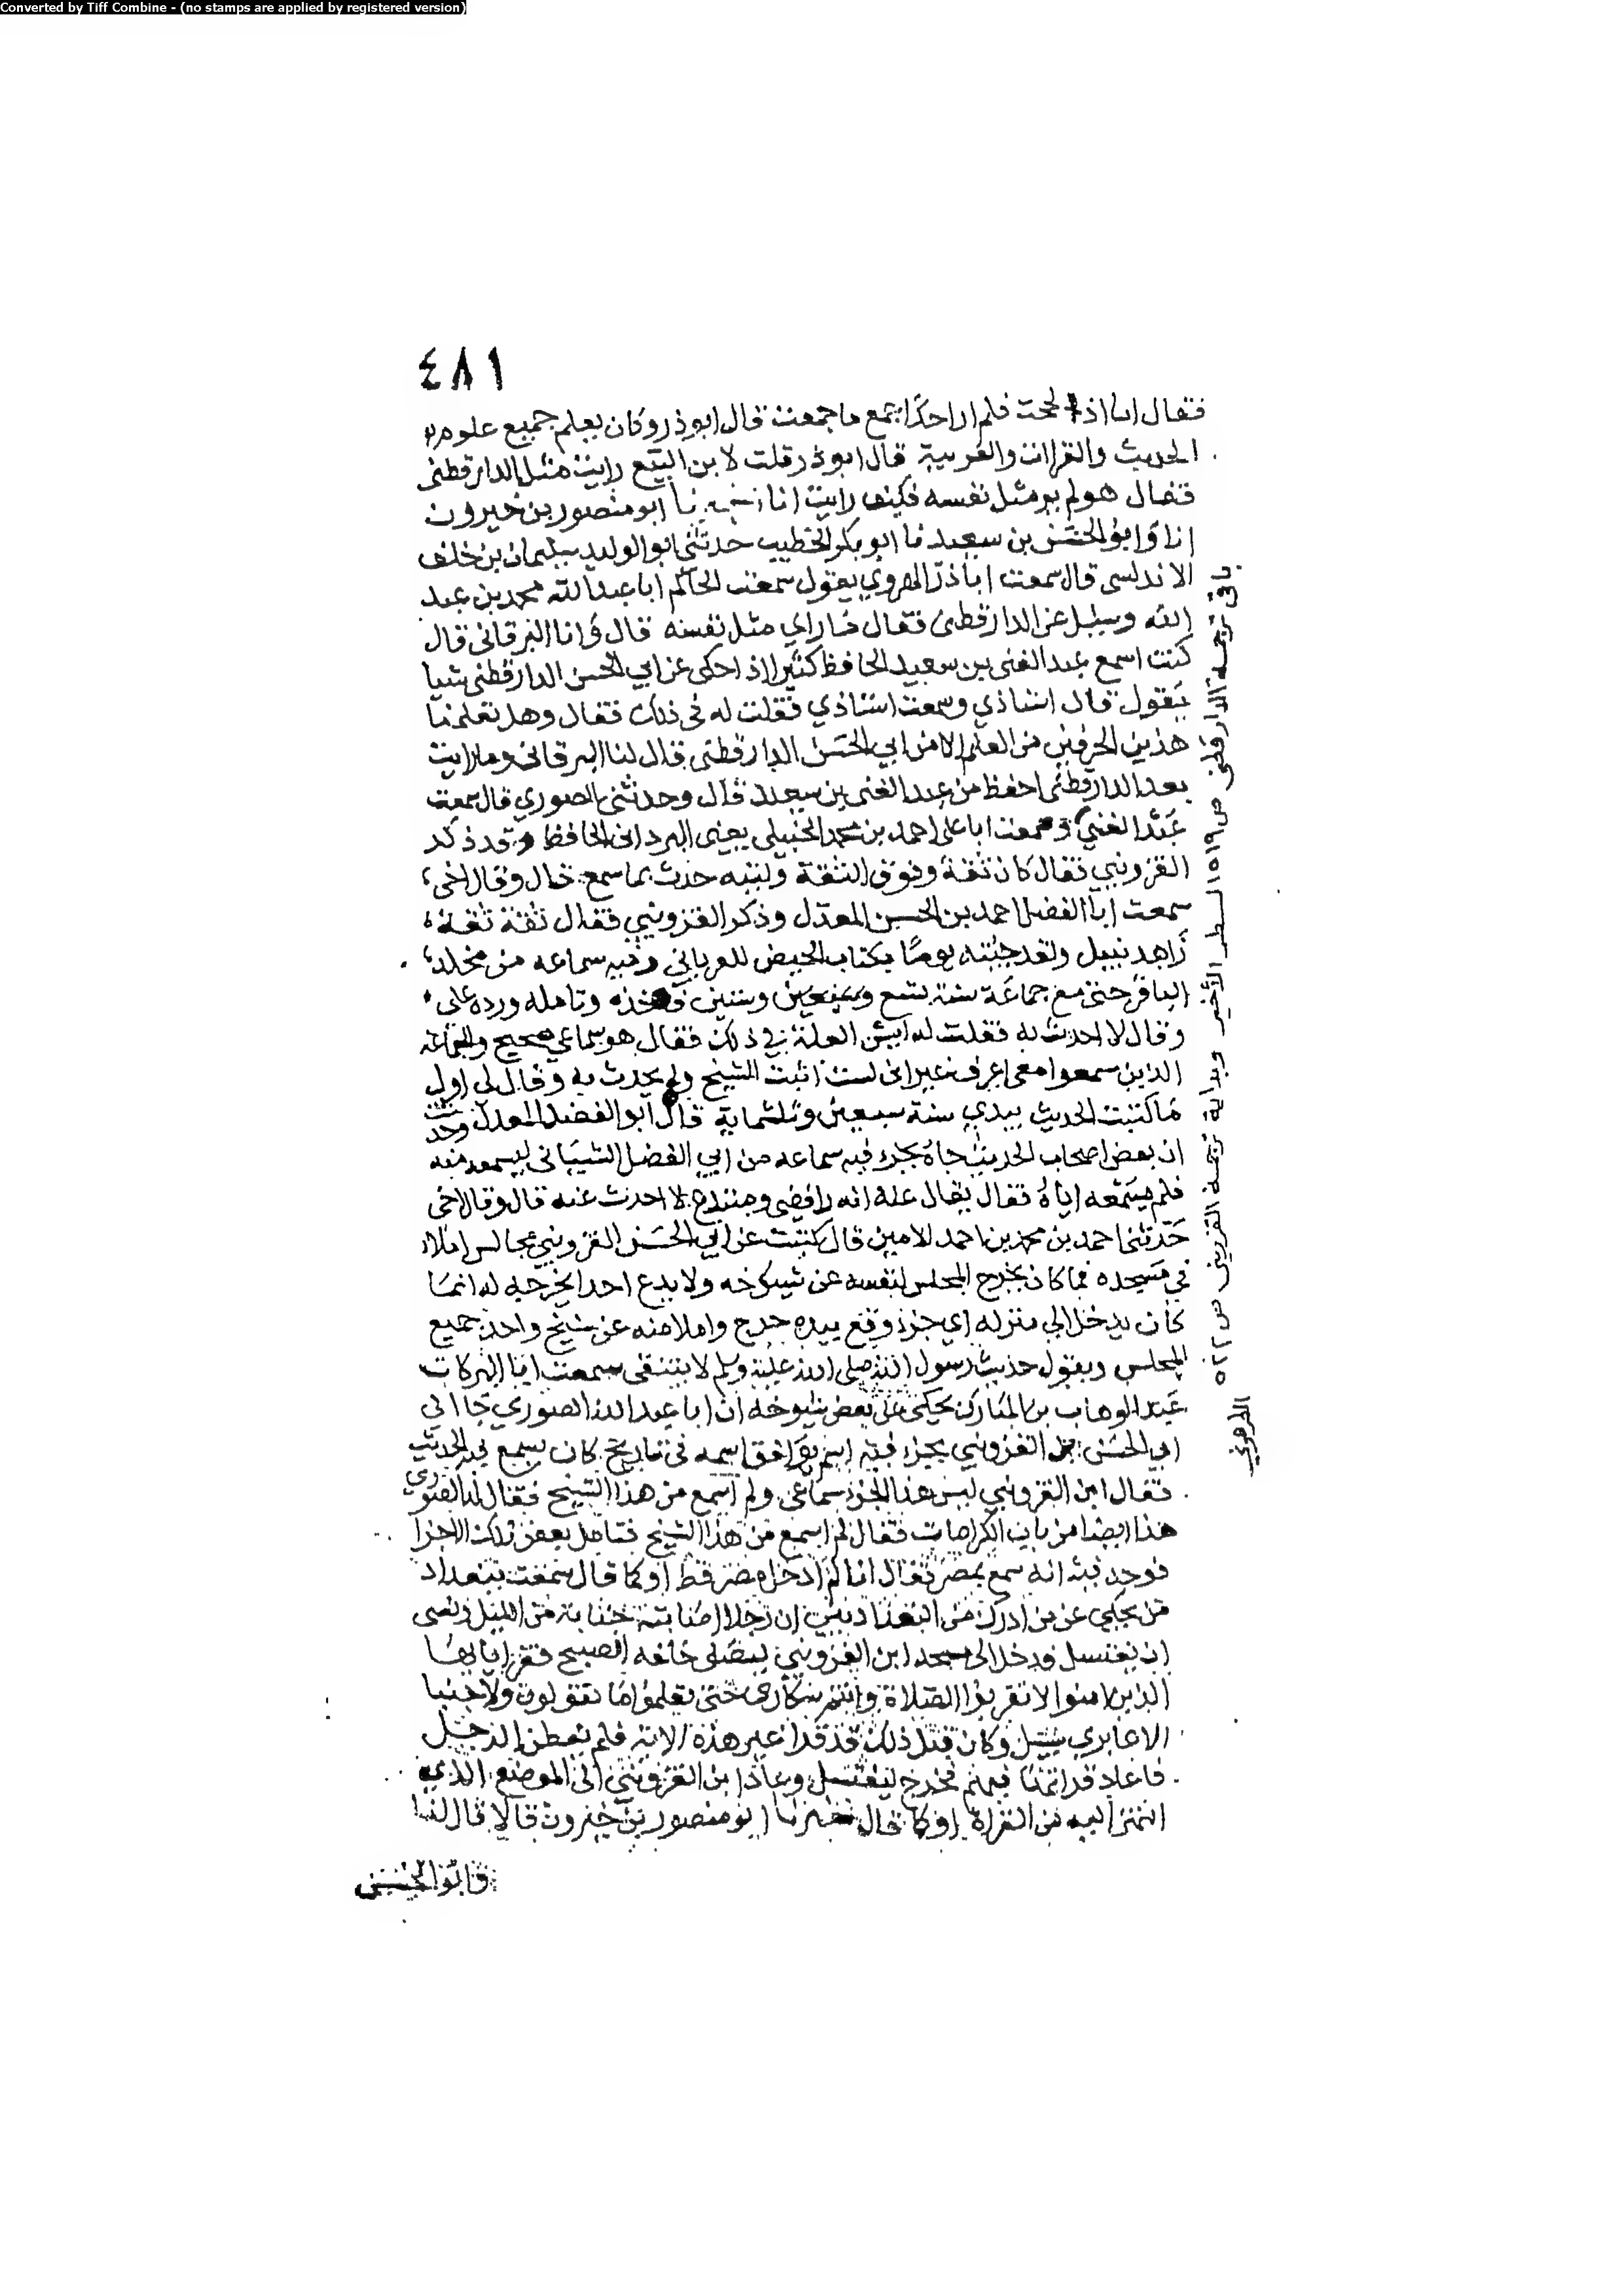 Converted by Tiff Combine - (no stamps are applied by registered version)
٤٨١
فقال اما اذا لححت فلم ار احدا جمع ما جمعت قال ابو ذر وكان يعلم جميع علوم
الحديث والقراات والعربية قال ابو ذر قلت لابن البيع رايت مثل الدارقطني
فقال هو لم ير مثل نفسه فكيف رايت انا ابو منصور بن خيرون
انا وابو الحسن بن سعيد نا ابو بكر الخطيب حدثني ابو الوليد سليمان بن خلف
الاندلسي قال سمعت ابا ذر الهروي يقول سمعت الحاكم ابا عبد الله محمد بن عبد
الله وسئل عن الدارقطني فقال ما راي مثل نفسه قال وانا البرقاني قال
كنت اسمع عبد الغني بن سعيد الحافظ كثيرا اذا حكى عن ابي الحسن الدارقطني شيا
يقول قال استاذي وسمعت استاذي فقلت له في ذلك فقال وهل تعلمنا
هذين الحرفين من العلم الا من ابي الحسن الدارقطني قال لنا البرقاني وما رايت
بعد الدارقطني احفظ من عبد الغني بن سعيد قال وحدثني الصوري قال سمعت
عبد الغني وسمعت ابا علي احمد بن محمد الحنبلي يعني البرداني الحافظ وقد ذكر
القزويني فقال كان ثقة وفوق الثقة وليته حدث بما سمع قال وقال اخي
سمعت ابا الفضل احمد بن الحسين المعدل وذكر القزويني فقال ثقة ثقة
زاهد نبيل ولقد جئته يوما بكتاب الحيض للفريابي وفيه سماعه من مخلد
الباقرحي مع جماعة سنة تسع وستين فاخذه وتامله ورده علي
وقال لا احدث به فقلت له ايش العلة في ذلك فقال هو سماعي صحيح والجماعة
الذين سمعوا معي اعرفهم غير اني لست اثبت الشيخ ولم يحدث به وقال لي اول
ما كتبت الحديث بيدي سنة سبعين وثلثماية قال ابو الفضل المعدل وحدثت
ان بعض اصحاب الحديث جاه بجزء فيه سماعه من ابي الفضل الشيباني ليسمعه منه
فلم يسمعه اياه فقال يقال عنه انه رافضي ومبتدع لا احدث عنه قال وقال اخي
حدثني احمد بن محمد بن احمد الامين قال كتبت عن ابي الحسن القزويني مجالس املاء
في مسجده فما كان يخرج المجلس لنفسه عن شيوخه ولا يدع احدا يخرجه له انما
كان يدخل الي منزله اي جزء وقع بيده خرج واملا منه عن شيخ واحد جميع
المجلس ويقول حديث رسول الله صلى الله عليه وسلم لا ينتقى سمعت ابا البركات
عبد الوهاب بن المبارك يحكي عن بعض شيوخه ان ابا عبد الله الصوري جا الى
ابي الحسن بن القزويني بجزء فيه اسم يوافق اسمه في تاريخ كان يسمع فيه الحديث
فقال ابن القزويني ليس هذا الجزء سماعي ولم اسمع من هذا الشيخ فقال له الصوري
هذا ايضا من باب الكرامات فقال لم اسمع من هذا الشيخ فتامل بعض تلك الاجزا
فوجد فيه انه سمع بمصر فقال انا لم ادخل مصر قط او كما قال سمعت ببغداد
من يحكي عن من ادرك من البغداديين ان رجلا اصابته جنابة من الليل ونسي
ان يغتسل فدخل الى مسجد ابن القزويني ليصلي خلفه الصبح فقرا يا ايها
الذين امنوا لا تقربوا الصلاة وانتم سكارى حتى تعلموا ما تقولون ولا جنبا
الا عابري سبيل وكان قبل ذلك قد قرا غير هذه الاية فلم يفطن الرجل
فاعاد قراتها فيهم فخرج ليغتسل وعاد ابن القزويني الى الموضع الذي
انتهى اليه من القراة او كما قال اخبرنا ابو منصور بن خيرون قالا قال لنا
وابو الحسن
باقي ترجمة الدارقطني ص ٥١٩ السطر الأخير وبداية ترجمة القزويني ص ٥٢٢
الطرهوني